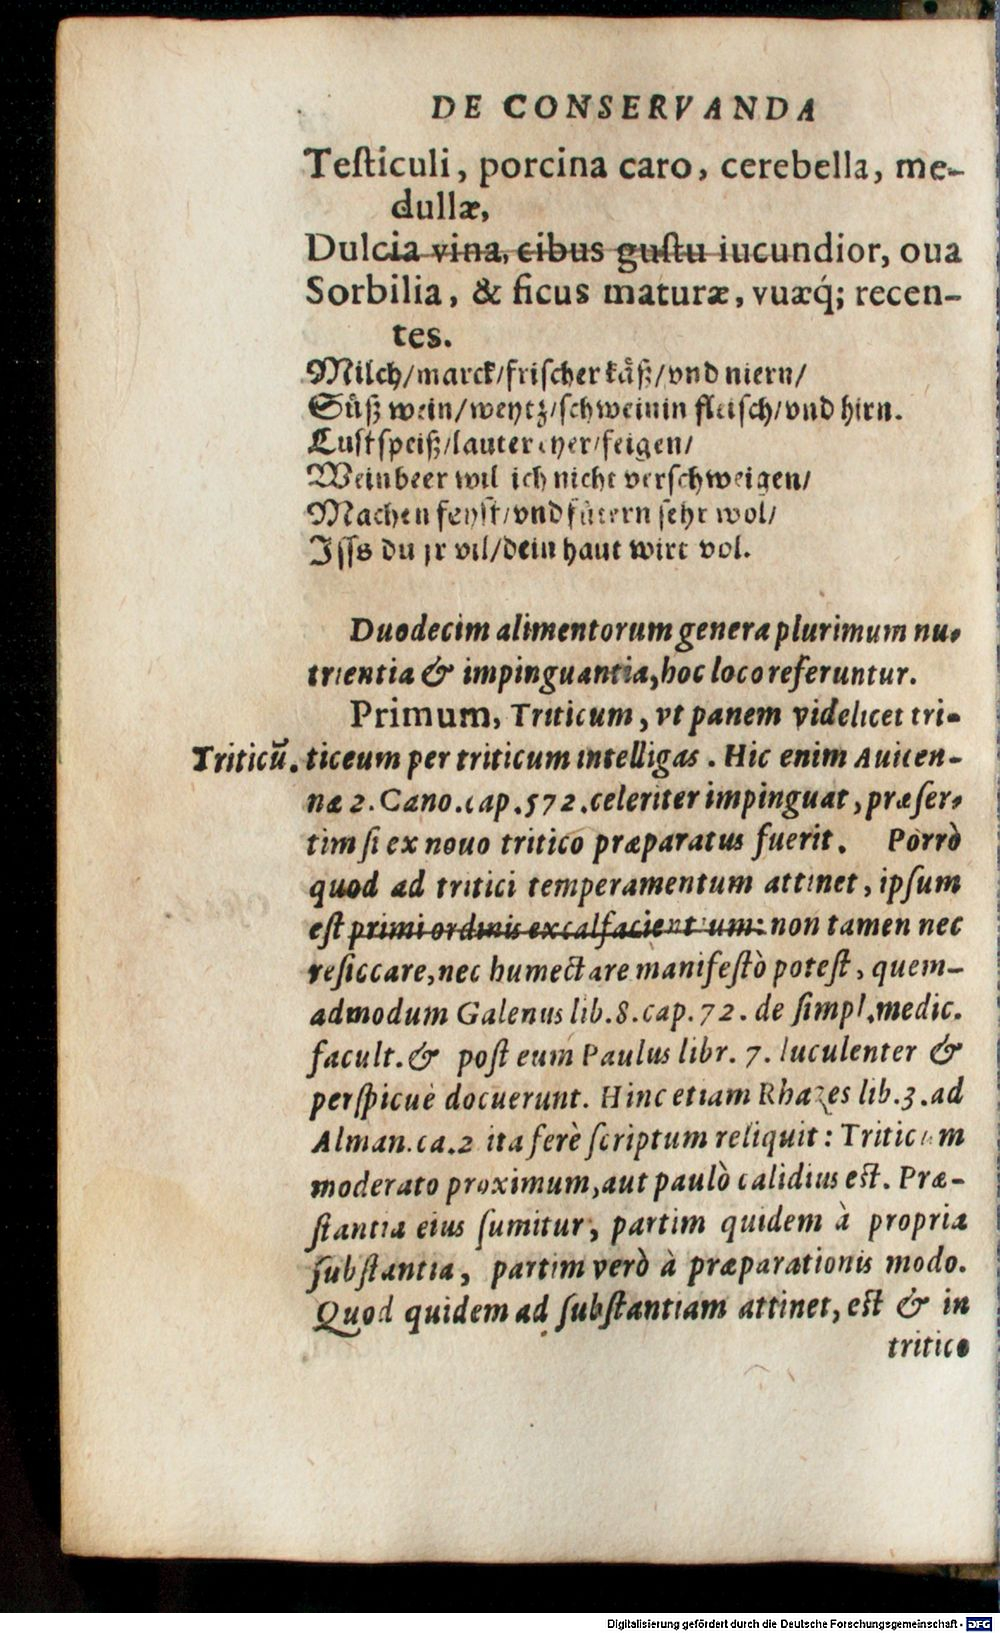 DE CONSERVANDA
Testiculi, porcina caro, cerebella, me-
dullæ,
Dulcia vina, cibus gustu iucundior, oua
Sorbilia, & ficus maturæ, vuæq́; recen-
tes.
Milch/marck/frischer kåß/vnd niern/
Sůß wein/weytz/schweinin fleisch/vnd hirn.
Lustspeiß/lauter eyer/feigen/
Weinbeer wil ich nicht verschweigen/
Machen feyst/vnd fůtern sehr wol/
Jsss du jr vil/dein haut wirt vol.
Duodecim alimentorum genera plurimum nu-
trientia & impinguantia, hoc loco referuntur.
Primum, Triticum, vt panem videlicet tri-
Triticū. ticeum per triticum intelligas. Hic enim Auicen-
næ 2. Cano. cap. 572. celeriter impinguat, præser-
tim si ex nouo tritico præparatus fuerit. Porrò
quod ad tritici temperamentum attinet, ipsum
est primi ordinis excalfacientium: non tamen nec
resiccare, nec humectare manifestò potest, quem-
admodum Galenus lib. 8. cap. 72. de simpl. medic.
facult. & post eum Paulus libr. 7. luculenter &
perspicuè docuerunt. Hinc etiam Rhazes lib. 3. ad
Alman. ca. 2 ita ferè scriptum reliquit: Triticum
moderato proximum, aut paulò calidius est. Præ-
stantia eius sumitur, partim quidem à propria
substantia, partim verò à præparationis modo.
Quod quidem ad substantiam attinet, est & in
tritico
Digitalisierung gefördert durch die Deutsche Forschungsgemeinschaft - DFG